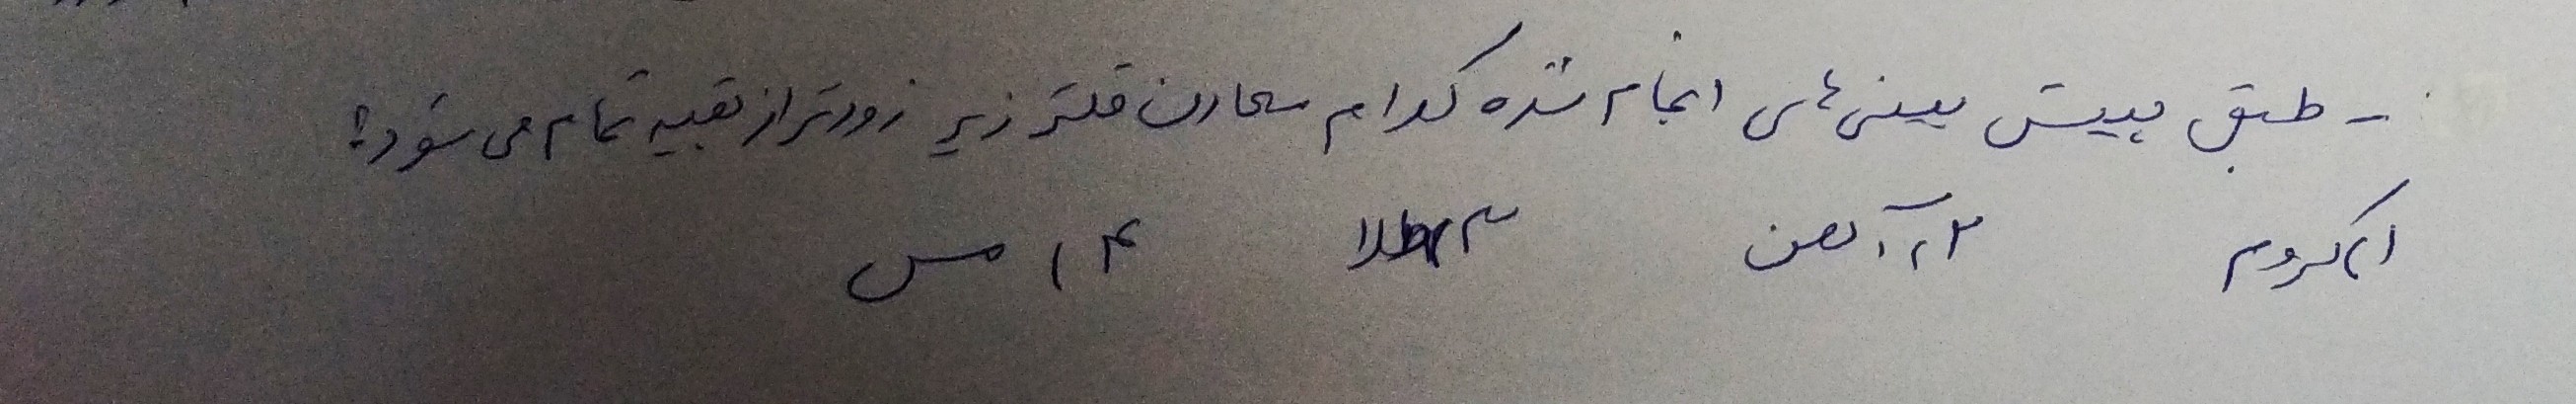 - طبق پیش بینی‌های انجام شده کدام معادن فلز زیر زودتر از بقیه تمام می شود؟
۱) کروم ۲) آهن ۳) طلا ۴) مس